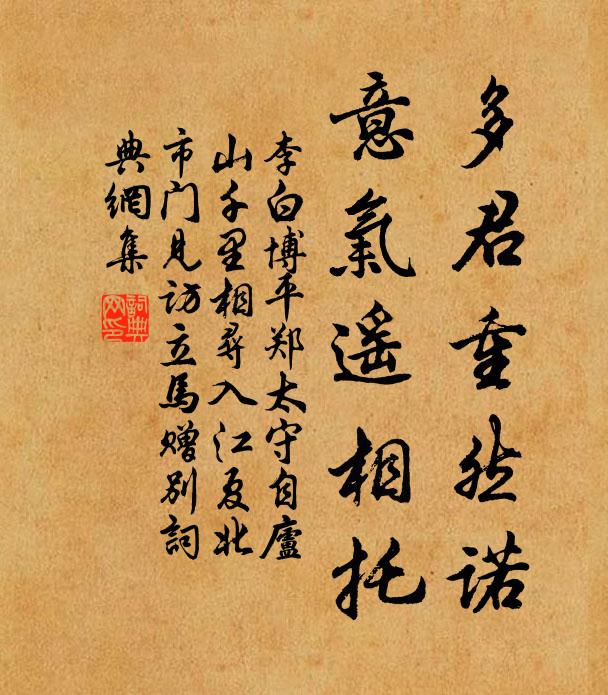 多君重然诺
意氣遥相托
李白博平郑太守自廬
山千里相尋入江夏北
市门見访立馬赠别詞
典網集
詞典網印